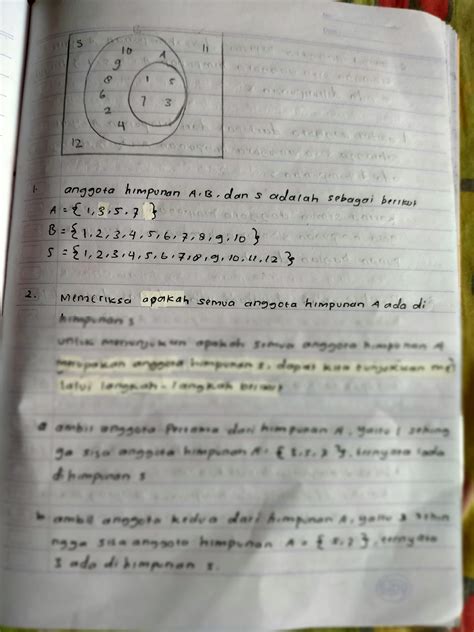 S
10
11
9
A
8
1
5
6
7
3
2
4
12
1. anggota himpunan A, B, dan S adalah sebagai berikut
A = { 1, 3, 5, 7 }
B = { 1, 2, 3, 4, 5, 6, 7, 8, 9, 10 }
S = { 1, 2, 3, 4, 5, 6, 7, 8, 9, 10, 11, 12 }
2. Memeriksa apakah semua anggota himpunan A ada di
himpunan S
untuk menunjukkan apakah semua anggota himpunan A
merupakan anggota himpunan S, dapat kau tunjukkan me
lalui langkah-langkah berikut
a ambil anggota Pertama dari himpunan A, yaitu 1 sehing
ga sisa anggota himpunan A = { 3, 5, 7 }, ternyata 1 ada
di himpunan S
b ambil anggota kedua dari himpunan A, yaitu 3 sehi
ngga sisa anggota himpunan A = { 5, 7 }, ternyata
3 ada di himpunan S.